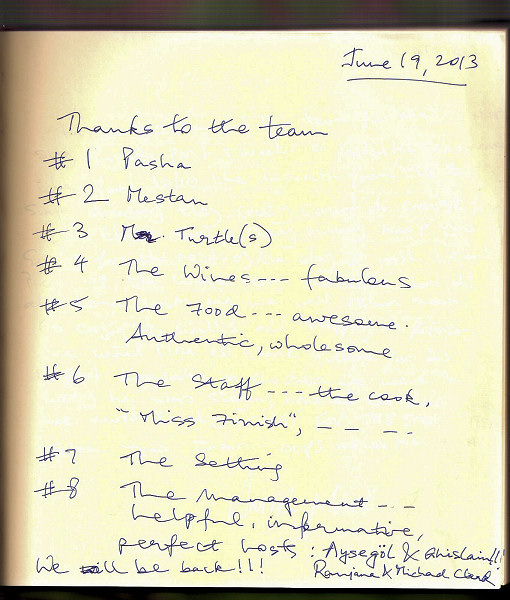 June 19, 2013
Thanks to the team
# 1 Pasha
# 2 Mestan
# 3 Mr. Turtle(s)
# 4 The Wines --- fabulous
# 5 The Food --- awesome.
Authentic, wholesome
# 6 The Staff --- the cook,
"Miss Finish", - - - -
# 7 The Setting
# 8 The Management - -
helpful, informative,
perfect hosts : Aysegöl & Ghislain!!!
We will be back!!! Ranjane & Michael Clark